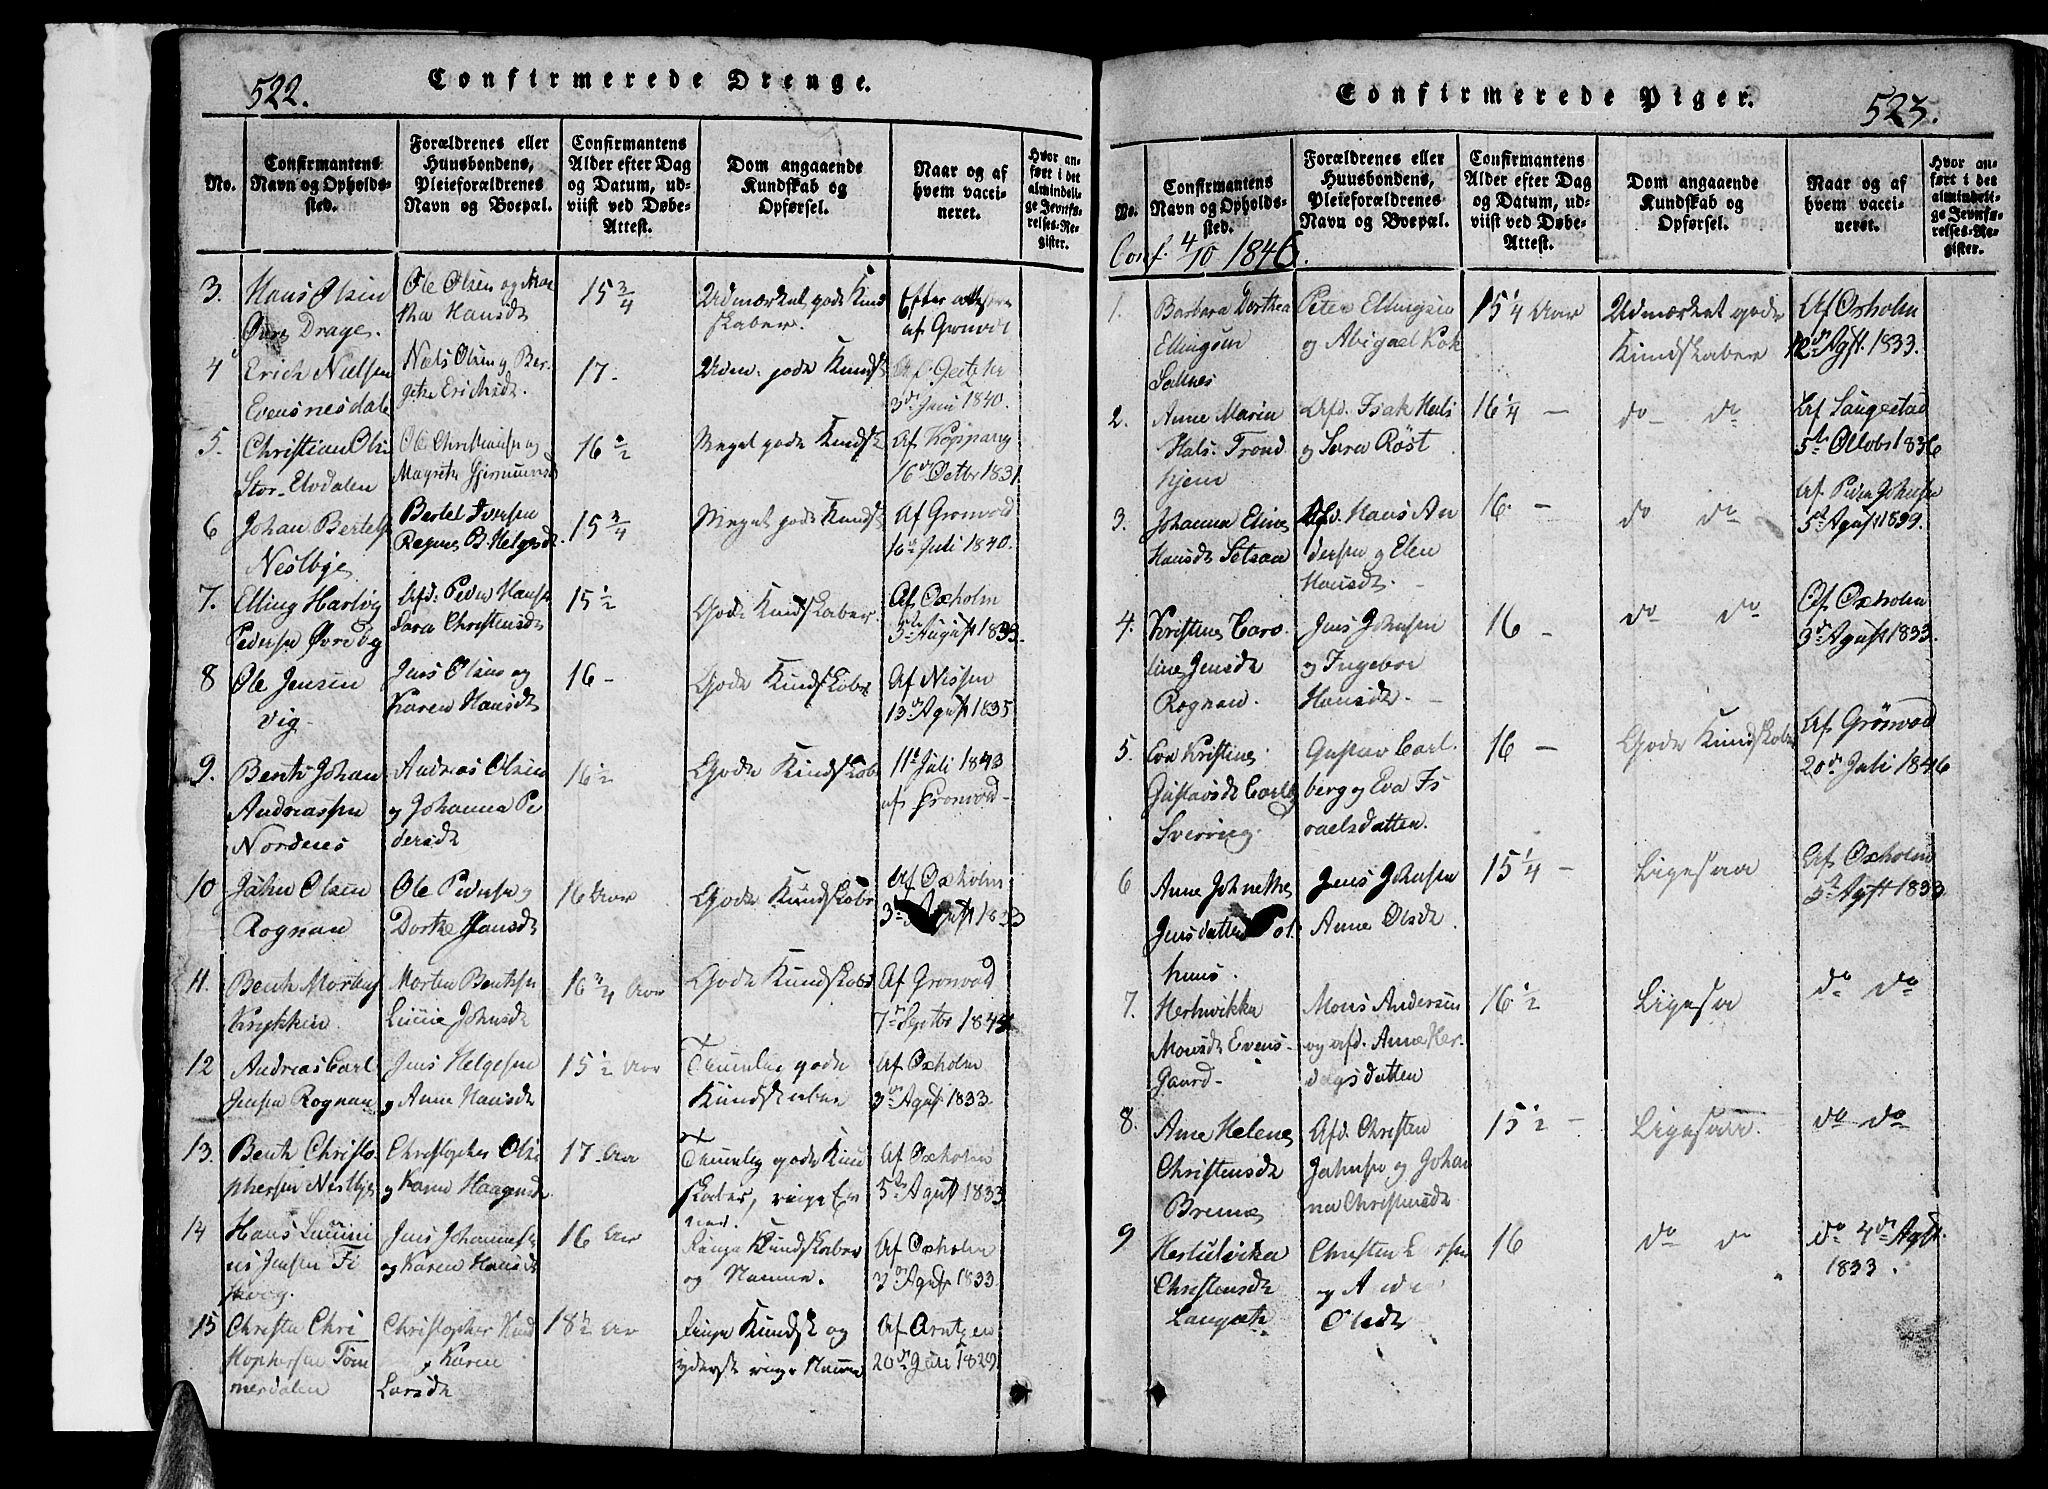 522.
Confirmerede Drenge.
No.
Confirmantens
Navn og Opholds-
sted.
Forældrenes eller
Huusbondens,
Pleieforældrenes
Navn og Boepæl.
Confirmantens
Alder efter Dag
og Datum, ud-
viist ved Døbe-
Attest.
Dom angaaende
Kundskab og
Opførsel.
Naar og af
hvem vacci-
neret.
Hvor an-
ført i det
almindeli-
ge Jevnfø-
relses-Re-
gister.
3.
Hans Olsen
Øvre Drage.
Ole Olsen og
Hansd
15 3/4
Udmærket gode Kund
skaber.
af Gronvol
4
Erich Nielsen
Evensnesdale
Niels Olsen og Ber-
Erichsd.
17.
Udm. gode Kundsk
3de Juni 1840.
5.
Christian Ols
Stor-Elvdalen
Ole Christians og
16 1/2
Meget gode Kundsk
Af Koppang
16de Octbr 1831
6
Johan Bertels
Nestbye
Bertel Iversen
15 3/4
Meget gode Kundsk
Af Gronvold
Juli 1840.
7.
Elling Hartvig
Pedersen
Afd. Peder Hansen
Sara Christensdt
15 1/2
Gode Kundskaber.
Af Oxholm
August 1833.
8
Ole Jensen
Vig
Jens Olsen og
Karen Hansdt
16 -
Gode Kundskaber
Af Nissen
13de Agust 1835
9.
Benth Johan
Andreassen
Nordnes
Andreas Olsen
og Johanna Pe
dersdt
16 1/2
Gode Kundskab
11te Juli 1843
af Gronvold
10
Jahn Olsen
Rognan
Ole Pedersen
Dorthe Hansdt
16 Aar
Gode Kundskabr
Af Oxholm
Agust 1833
11.
Benth Mortens
Krykken
Morten Benthsen
Johnsdt
16 3/4 Aar
Gode Kundskabr
Af Gronvold
7de Septbr
12
Andreas Carl
Jensen Rognan
Jens Helgesen
og Anne Hansdt
15 1/2 Aar
Temmelig gode
Kundskaber
Af Oxholm
3de Agust 1833.
13.
Benth Christo
phersen Nestbye
Christopher Olse
og Karen Haagensdt
17 Aar
Temmelig gode Kund
skaber, ringe Ev
ner.
Af Oxholm
5te Agust 1833
14
Hans
Jensen
Jens Johannesen
og Karen Hansdt
16 Aar
Ringe Kundskaber
og Nemme.
Af Oxholm
Agust 1833.
15
Christen Chri
stophersen Tom
merdalen
Christopher
og Karen
Larsdt
18 1/2 Aar
Ringe Kundsk og
yderst ringe Nemme
Af Arntzen
20de Juli 1829.
Confirmerede Piger.
523.
No.
Confirmantens
Navn og Opholds-
sted.
Forældrenes eller
Huusbondens,
Pleieforældrenes
Navn og Boepæl.
Confirmantens
Alder efter Dag
og Datum, ud-
viist ved Døbe-
Attest.
Dom angaaende
Kundskab og
Opførsel.
Naar og af
hvem vacci-
neret.
Hvor an-
ført i det
almindeli-
ge Jevnfø-
relses-Re-
gister.
Conf. 4/10 1846.
1.
Barbara Dorthea
Ellingsen
Saltnes
Peter Ellingsen
og Abigael Kok
15 1/4 Aar
Udmærket gode
Kundskaber
Af Oxholm
Agst. 1833.
2.
Anne Maria
Hals. Trond
hjem
Afd. Isak Hals
og Sara Røst
16 1/4 -
do do
Af Saugestad
5te Octobr 1836
3.
Johanna Eline
Hansdt Setsaa
Afd. Hans An
dersen og Elen
Hansdt.
16. -
do do
Af Peder Johnsen
5te Agust
4.
Kristine Caro
line Jensdt
Rognan.
Jens Johnsen
og Ingebor
Hansdt.
16 -
do do
Af Oxholm
3de Agust 1833.
5.
Eva Kristine
Gustavsdt Carlb
Gustav Carl-
berg og Eva Is
raelsdatter.
16 -
Gode Kundskaber
Af Grönvold
20de Juli 1846
6
Anne Johnethe
Jensdatter
huus.
Jens Johnsen
Anne Olsdt.
15 1/4 -
Ligesaa
Af Oxholm
5te Agst 1833
7.
Monsdt Evens-
gaard
Mons Andersen
og afd. Anne Her-
dagsdatter
16 1/2
Ligesaa
do do
8.
Anne Helene
Christensdt
Afd. Christen
Jahnsen og Johan
na Christensdt
15 1/2 -
Ligesaa.
do do
9
Christensdt
Christen
og
Olsdt
16
do do
do 4de Agst.
1833.